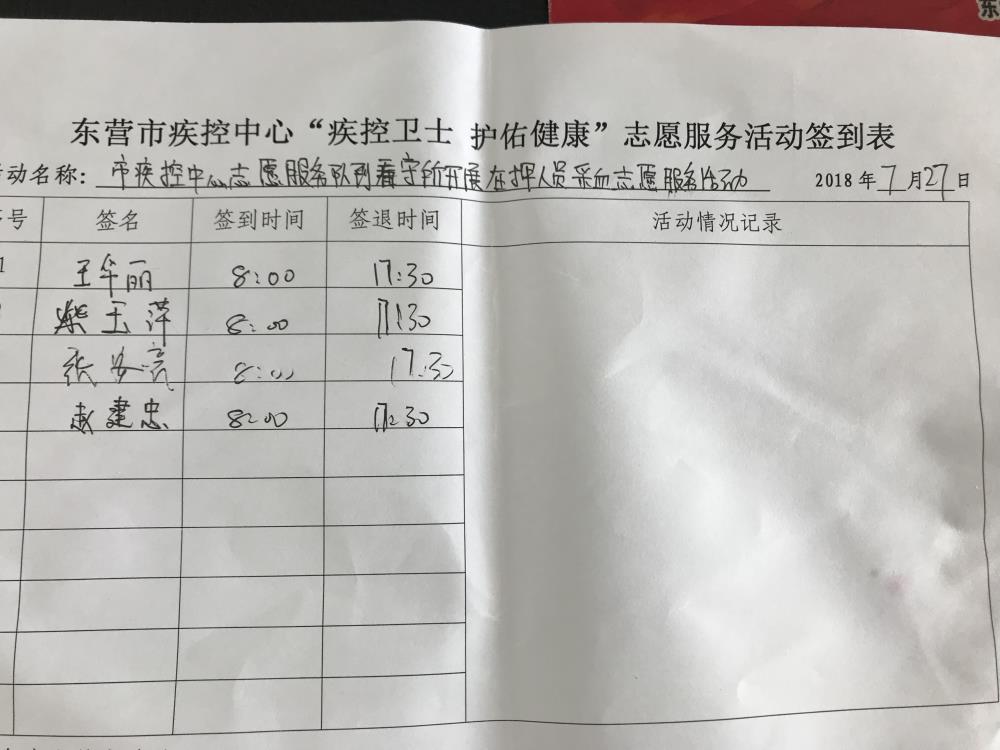 东营市疾控中心“疾控卫士 护佑健康”志愿服务活动签到表
动名称： 市疾控中心志愿服务队到看守所开展在押人员采血志愿服务活动 2018 年 7 月 27 日
号 签名 签到时间 签退时间 活动情况记录
1 王华丽 8:00 17:30
柴玉萍 8:00 17:30
张安亮 8:00 17:30
赵建忠 8:00 17:30